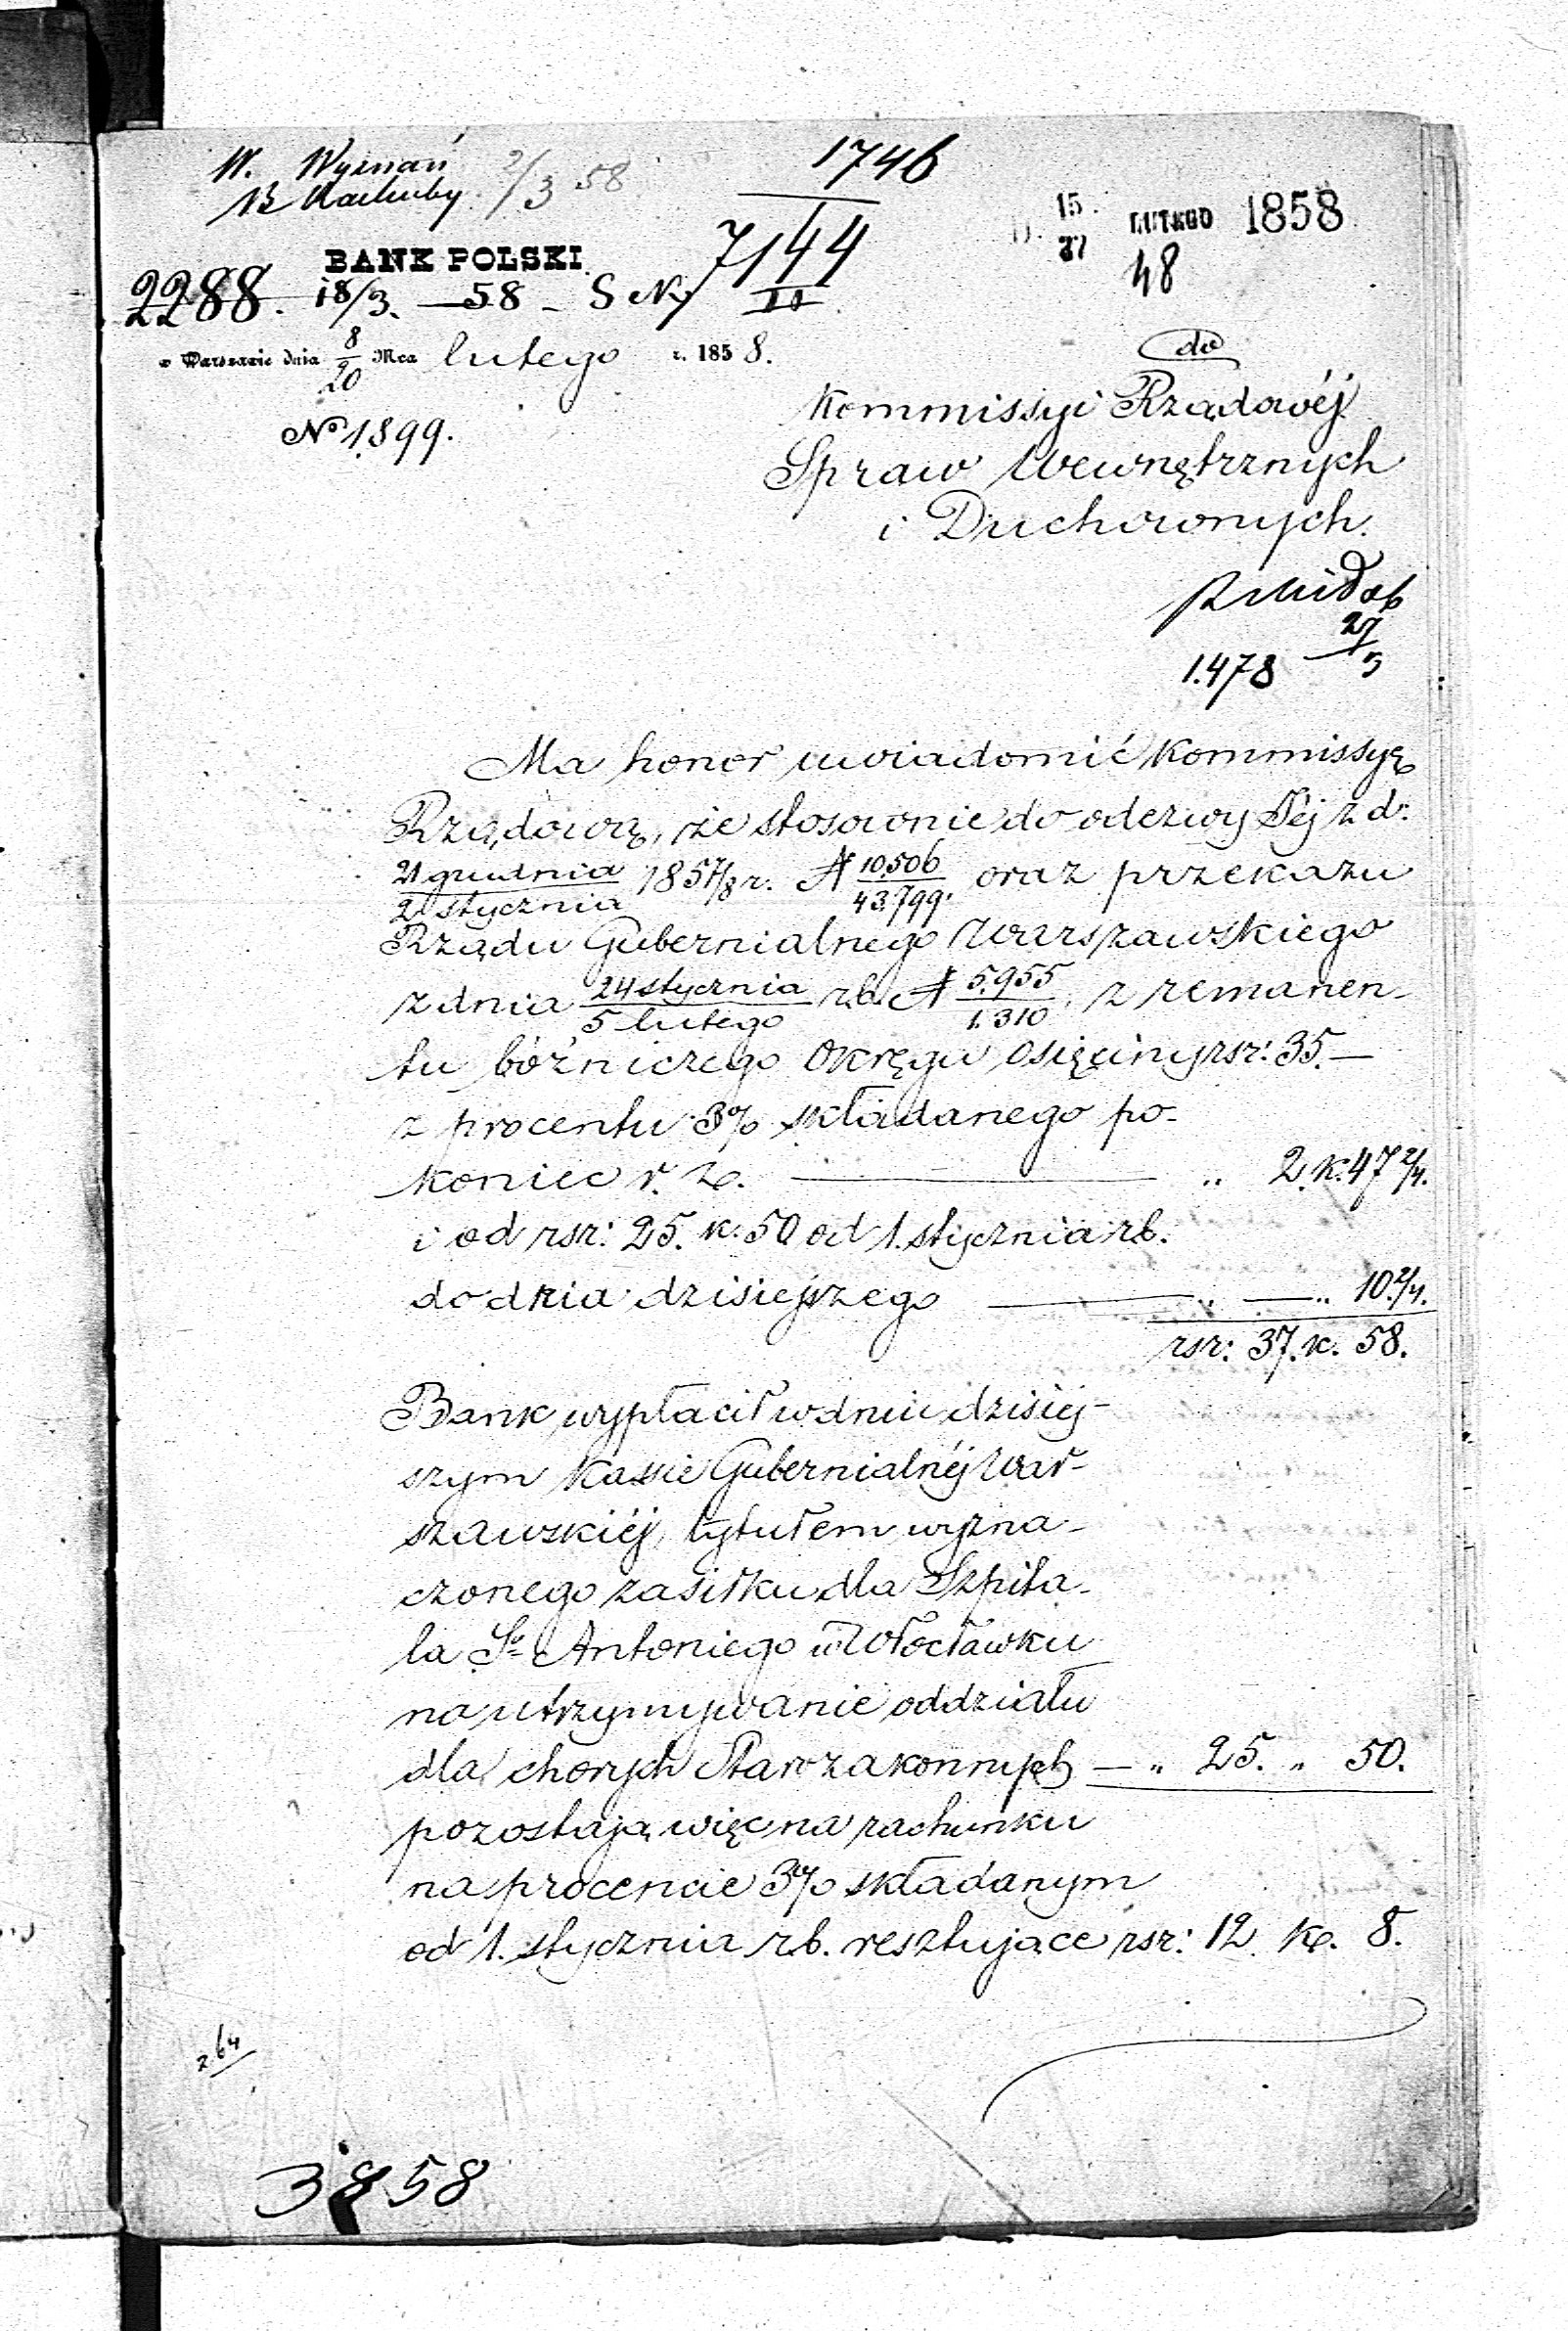 W. Wyznań
1746
B Rachuby 2/3 58
15
27 LUTEGO 1858
BANK POLSKI
7144
II
48
2288. 18/3 — 58 — S N
w Warszawie dnia 8/20 Mca lutego r. 1858.
No 1,899.
do
Kommissyi Rządowéj
Spraw Wewnętrznych
i Duchownych.
27
3
1.478
Ma honor uwiadomić Kommissyę
Rządową, że stosownie do odezwy Jéj z d:
21 grudnia / 2 stycznia 1857/8 r. N 10,506 / 43,799. oraz przekazu
Rządu Gubernialnego Warszawskiego
z dnia 24 stycznia / 5 lutego r.b. N 5,955 / 1.310, z remanen-
tu bóźniczego Okręgu Osięciny rsr: 35.—
z procentu 3% składanego po-
koniec r. z. — „ 2. k. 47 2/4.
i od rsr: 25. k. 50 od 1. stycznia r.b.
do dnia dzisiejszego — „ — „ 10 2/4.
rsr: 37. k. 58.
Bank wypłacił w dniu dzisiej-
szym Kassie Gubernialnéj War-
szawskiéj, tytułem wyzna-
czonego zasiłku dla Szpita-
la So Antoniego w Włocławku
na utrzymywanie oddziału
dla chorych Starozakonnych — „ 25. „ 50.
pozostają więc na rachunku
na procencie 3% składanym
od 1. stycznia r.b. resztujące rsr: 12. k. 8.
z 64
3858